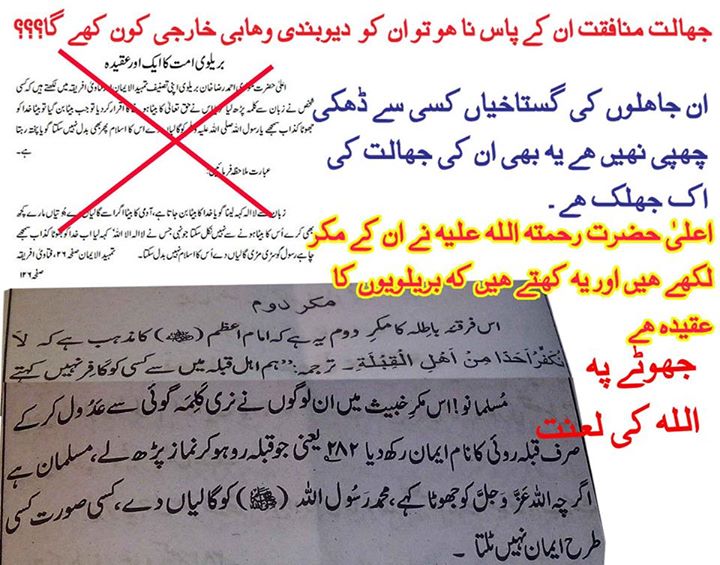 جھالت منافقت ان کے پاس نا ھو تو ان کو دیوبندی وھابی خارجی کون کھے گا؟؟؟؟
بریلوی امت کا ایک اور عقیدہ
اعلیٰ حضرت احمد رضا خان بریلوی اپنی تصنیف تمہید الایمان فتاویٰ افریقہ میں لکھتے ہیں کہ کسی
شخص نے زبان سے کلمہ پڑھ لیا اس نے حق تعالیٰ کا بیٹا ہونے کا اقرار کر دیا تو جب بیٹا بن گیا تو بیٹا خدا کو
جھوٹا کذاب سمجھے یا رسول اللہ صلی اللہ علیہ وسلم کو گالیاں دے اس کا اسلام پھر بھی بدل نہیں سکتا گویا پختہ رہتا
ہے۔
عبارت ملاحظہ فرمائیں
زبان سے لا الہ کہہ لینا گویا خدا کا بیٹا بن جاتا ہے، آدمی کا بیٹا اگر اسے گالیاں دے جوتیاں مارے کچھ
بھی کرے اُس کا بیٹا ہونے سے نہیں نکل سکتا جونہی جس نے لا الہ الا اللہ کہہ لیا اب خدا کو جھوٹا کذاب سمجھے
چاہے رسول کو سڑی سڑی گالیاں دے اس کا اسلام نہیں بدل سکتا۔ تمہید الایمان صفحہ ۲۶، فتاویٰ افریقہ
صفحہ ۱۲۶
ان جاھلوں کی گستاخیاں کسی سے ڈھکی
چھپی نھیں ھے یہ بھی ان کی جھالت کی
اک جھلک ھے۔
اعلیٰ حضرت رحمتہ اللہ علیہ نے ان کے مکر
لکھے ھیں اور یہ کھتے ھیں کہ بریلویوں کا
عقیدہ ھے
جھوٹے پہ
اللہ کی لعنت
مکر دوم
اس فرقۂ باطلہ کا مکر دوم یہ ہے کہ امام اعظم (ﷺ) کا مذہب ہے کہ لَا
نُكَفِّرُ اَحَدًا مِنْ اَهْلِ الْقِبْلَةِ۔ ترجمہ: "ہم اہل قبلہ میں سے کسی کو کافر نہیں کہتے
مُسلمانو! اس مکرِ خبیث میں ان لوگوں نے نری کَلِمَہ گوئی سے عُدُول کر کے
صرف قبلہ روئی کا نام ایمان رکھ دیا ۲۸۲ یعنی جو قبلہ رو ہو کر نماز پڑھ لے، مسلمان ہے
اگرچہ اللہ عَزَّ وَجَلَّ کو جھوٹا کہے، محمد رَسُول اللہ (ﷺ) کو گالیاں دے، کسی صورت کسی
طرح ایمان نہیں ٹلتا۔